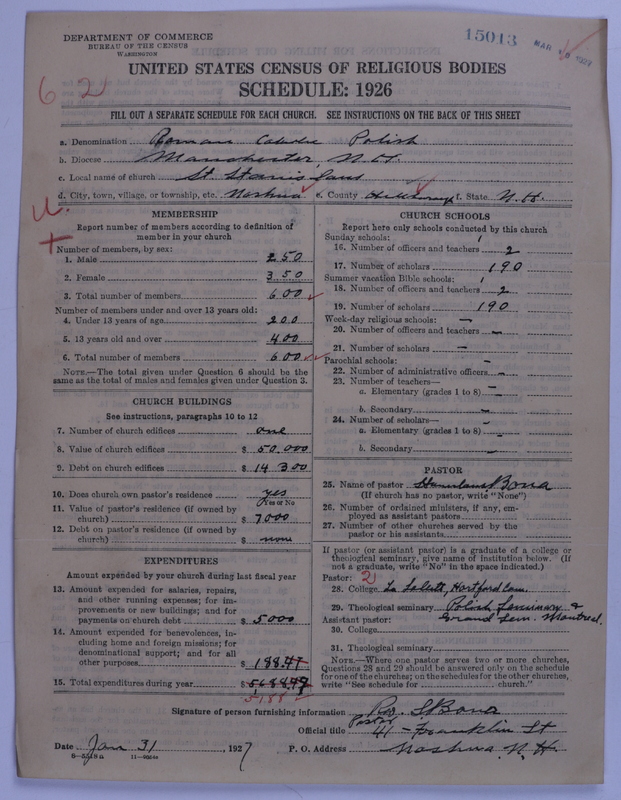 DEPARTMENT OF COMMERCE
BUREAU OF THE CENSUS
WASHINGTON
15013
MAR
UNITED STATES CENSUS OF RELIGIOUS BODIES
SCHEDULE: 1926
6 2
FILL OUT A SEPARATE SCHEDULE FOR EACH CHURCH. SEE INSTRUCTIONS ON THE BACK OF THIS SHEET
a. Denomination Roman Polish
b. Diocese Manchester, N. H.
c. Local name of church St. Stanislaus
d. City, town, village, or township, etc. Nashua e. County Hillsborough f. State N. H.
MEMBERSHIP
Report number of members according to definition of
member in your church
Number of members, by sex:
1. Male 250
2. Female 350
3. Total number of members 600
Number of members under and over 13 years old:
4. Under 13 years of age 200
5. 13 years old and over 400
6. Total number of members 600
NOTE.—The total given under Question 6 should be the
same as the total of males and females given under Question 3.
CHURCH BUILDINGS
See instructions, paragraphs 10 to 12
7. Number of church edifices one
8. Value of church edifices $ 50.000
9. Debt on church edifices $ 14 300
10. Does church own pastor's residence yes
(Yes or No)
11. Value of pastor's residence (if owned by
church) $ 7000
12. Debt on pastor's residence (if owned by
church) $ none
EXPENDITURES
Amount expended by your church during last fiscal year
13. Amount expended for salaries, repairs,
and other running expenses; for im-
provements or new buildings; and for
payments on church debt $ 5000
14. Amount expended for benevolences, in-
cluding home and foreign missions; for
denominational support; and for all
other purposes $ 188.47
15. Total expenditures during year $
5188
CHURCH SCHOOLS
Report here only schools conducted by this church
Sunday schools: 1
16. Number of officers and teachers 2
17. Number of scholars 190
Summer vacation Bible schools: 1
18. Number of officers and teachers 2
19. Number of scholars 190
Week-day religious schools: —
20. Number of officers and teachers —
21. Number of scholars —
Parochial schools: —
22. Number of administrative officers —
23. Number of teachers—
a. Elementary (grades 1 to 8) —
b. Secondary —
24. Number of scholars—
a. Elementary (grades 1 to 8) —
b. Secondary —
PASTOR
25. Name of pastor Stanislaus Bona
(If church has no pastor, write "None")
26. Number of ordained ministers, if any, em-
ployed as assistant pastors
27. Number of other churches served by the
pastor or his assistants
If pastor (or assistant pastor) is a graduate of a college or
theological seminary, give name of institution below. (If
not a graduate, write "No" in the space indicated.)
Pastor: 2
28. College La Salette, Hartford Conn.
29. Theological seminary Polish Seminary &
Assistant pastor: Grand Sem. Montreal
30. College
31. Theological seminary
NOTE.—Where one pastor serves two or more churches,
Questions 28 and 29 should be answered only on the schedule
for one of the churches; on the schedules for the other churches,
write "See schedule for church."
Signature of person furnishing information Rev. S Bona
Official title Pastor 41 - Franklin St
Date Jan 31, 1927 P. O. Address Nashua N. H.